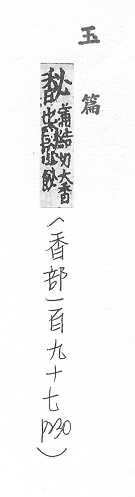 玉篇
馝 蒲結切大香
也 飶
(香部一百九十七 p230)